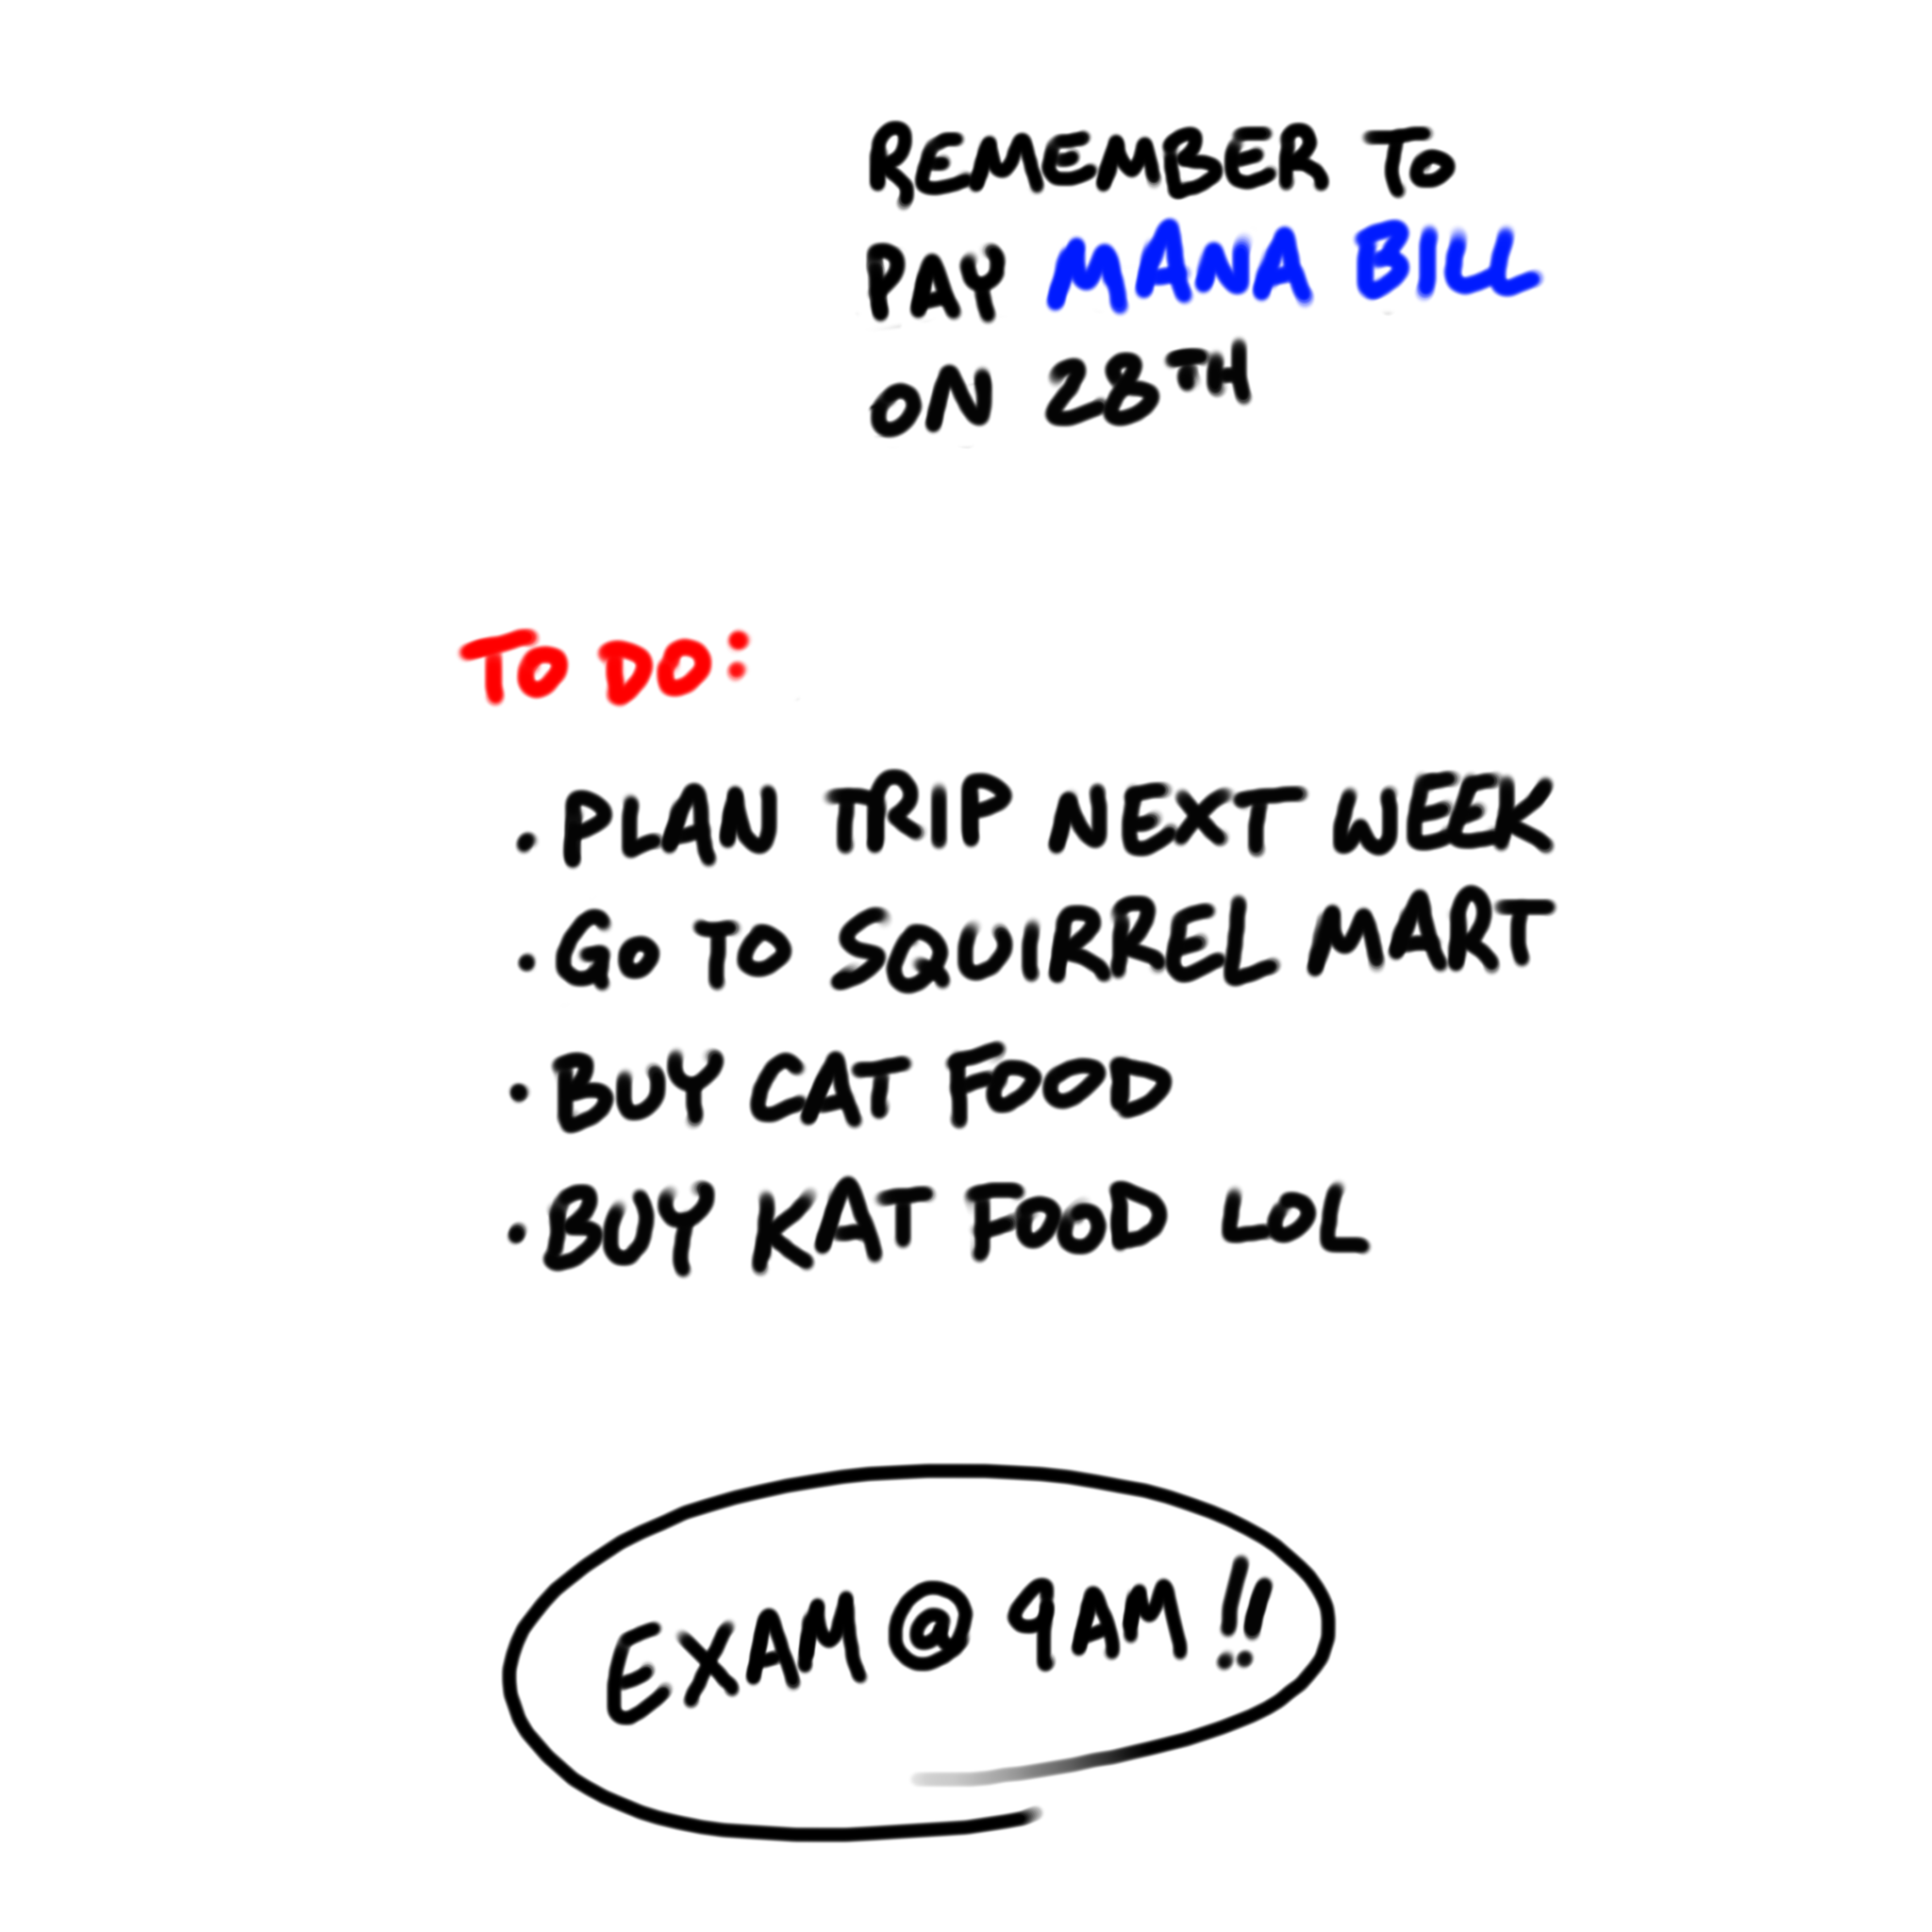 REMEMBER TO
PAY MANA BILL
ON 28TH
TO DO:
• PLAN TRIP NEXT WEEK
• GO TO SQUIRREL MART
• BUY CAT FOOD
• BUY KAT FOOD LOL
EXAM @ 9AM !!